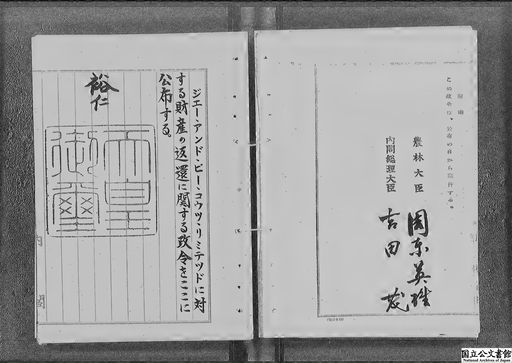 附則
この政令は、公布の日から施行する。
農林大臣 周東英雄
内閣総理大臣 吉田茂
ジエー・アンド・ピー・コウツ・リミテツドに対
する財産の返還に関する政令をここに
公布する。
裕仁
天皇
御璽
国立公文書館
National Archives of Japan